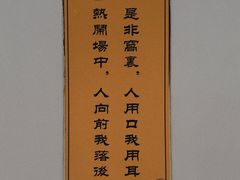 是非窩裏，人用口我用耳
熱鬧場中，人向前我落後